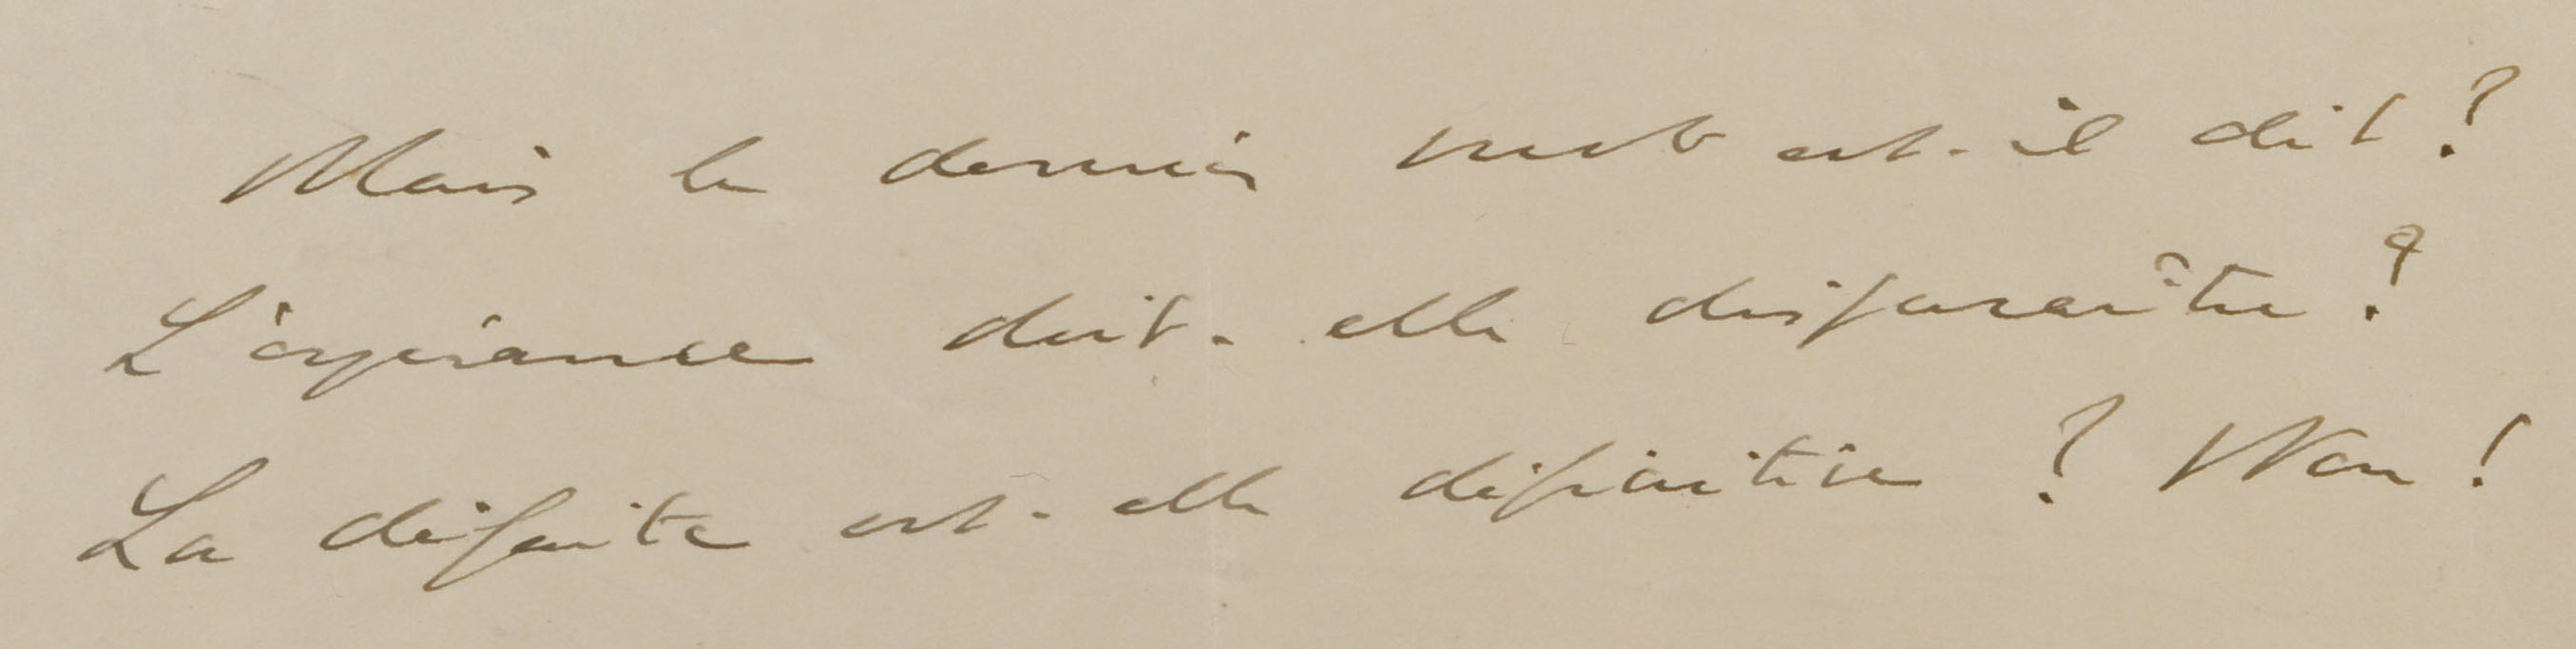 Mais le dernier mot est-il dit ?
L'espérance doit-elle disparaître ?
La défaite est-elle définitive ? Non !